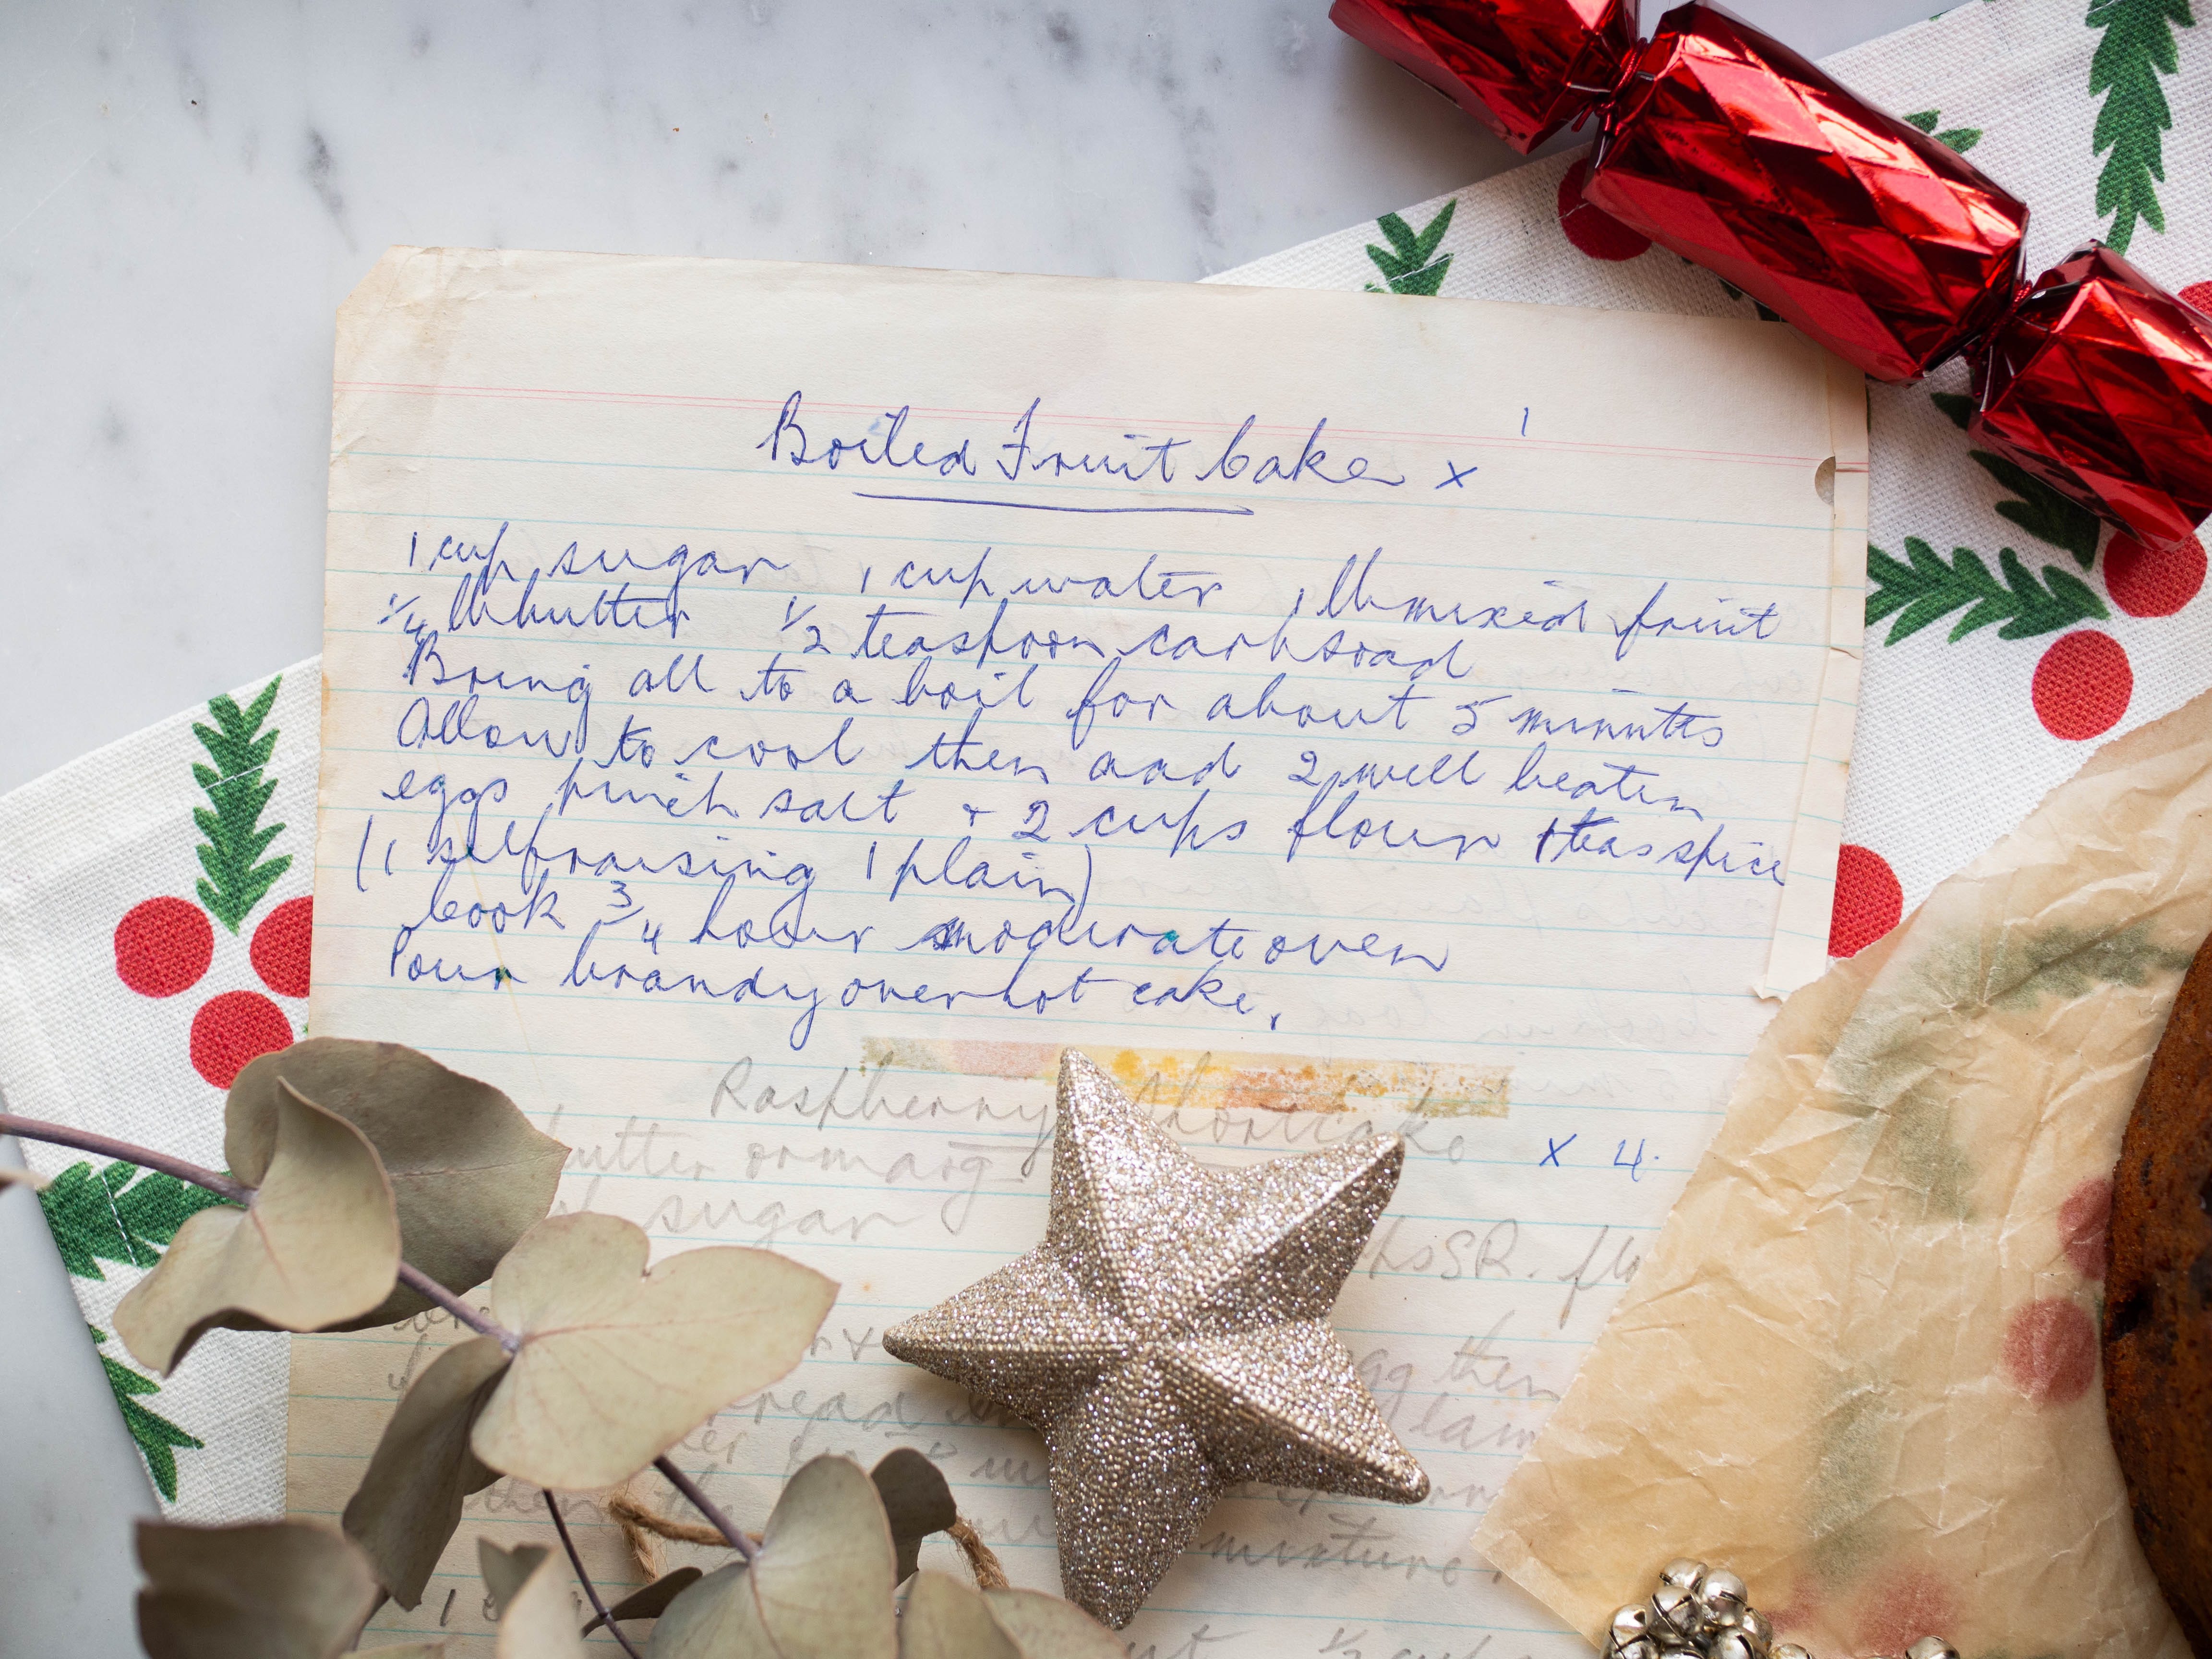 1
Boiled Fruit Cake x
1 cup sugar 1 cup water 1 lb mixed fruit
1/4 lb butter 1/2 teaspoon carbsoad
Bring all to a boil for about 5 minutes
Allow to cool then add 2 well beaten
eggs pinch salt + 2 cups flour 1 teas spice
(1 selfraising 1 plain)
Cook 3/4 hour moderate oven
Pour brandy over hot cake.
Raspberry Shortcake
x 4.
butter or marg
sugar
SR. flo
egg then
read
then the
mixture
1/2